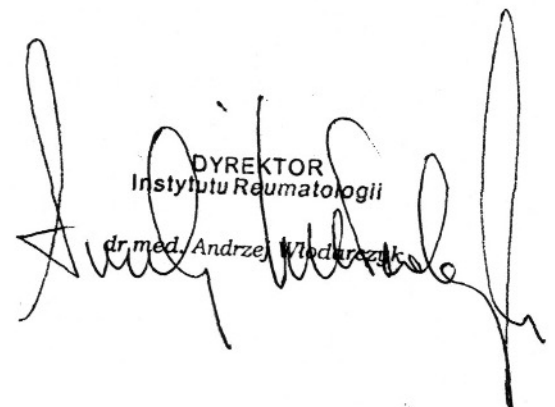 DYREKTOR
Instytutu Reumatologii
dr med. Andrzej Włodarczyk